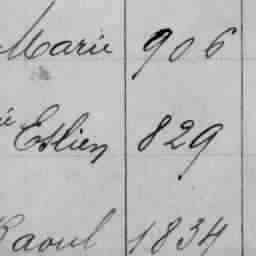 Marie 906
Eslien 829
Raoul 1834